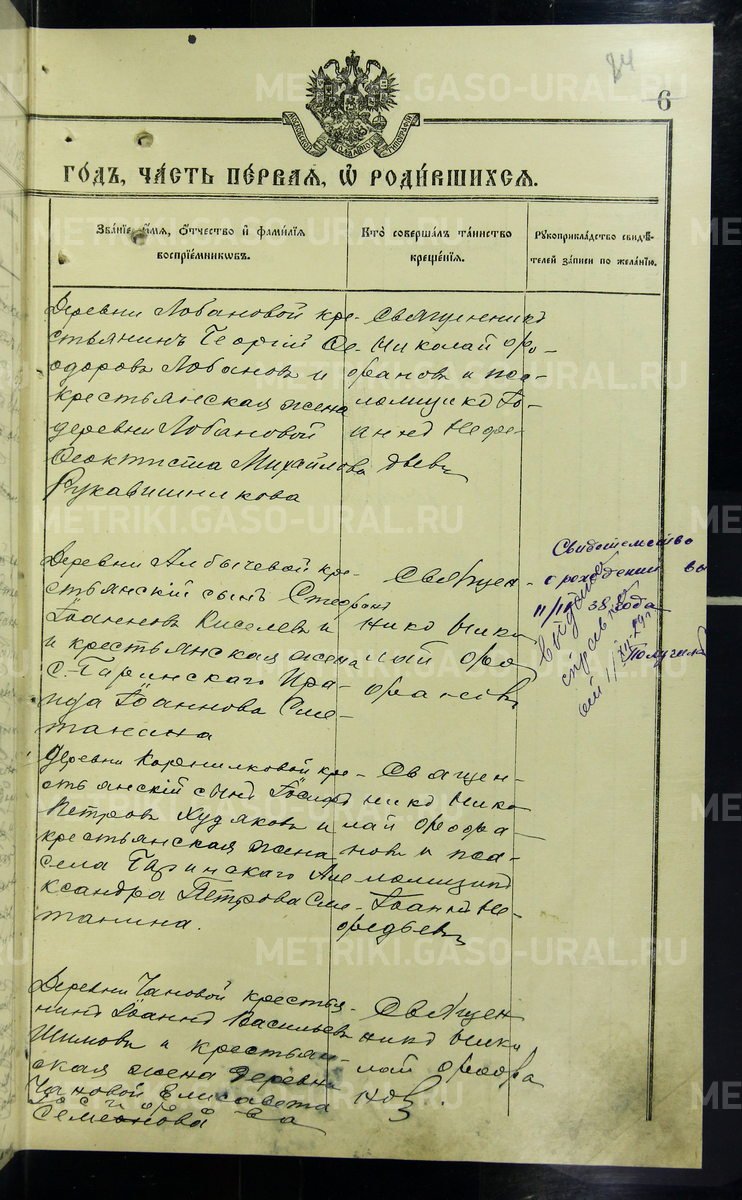 84
6
ГОДЪ, ЧАСТЬ ПЕРВАЯ, Ѡ РОДИВШИХСЯ.
Званіе, имя, отчество и фамилія
воспріемниковъ.
Кто совершалъ таинство
крещенія.
Рукоприкладство свидѣ-
телей записи по желанію.
Деревни Лобановой кре-
стьянинъ Георгій Ѳе-
одоровъ Лобановъ и
крестьянская жена
деревни Лобановой
Ѳеоктиста Михайлова
Рукавишникова
Священникъ
Николай
и пса-
ломщикъ Іо-
аннъ Неѳе-
дьевъ
Деревни кре-
стьянскій сынъ Стефанъ
Іоанновъ Киселевъ и
и крестьянская жена
с. Гаринскаго Ира-
ида Іоаннова Сме-
танина
Священ-
никъ Нико
лай
Свидетельство
о рождении вы
11/IV 38 года
Получил
Деревни Корнилковой кре-
стьянскій сынъ Іосифъ
Петровъ Худяковъ и
крестьянская жена
села Гаринскаго Але
ксандра Петрова Сме-
танина.
Священ-
никъ Нико
лай
и пса-
ломщикъ
Іоаннъ Не-
ѳедьевъ
Деревни Чановой крестья-
нинъ Іоаннъ Васильевъ
Шимовъ и крестьян-
ская жена деревни
Чановой Елисавета
Семенова
Священ
никъ Нико
лай
METRIKI.GASO-URAL.RU